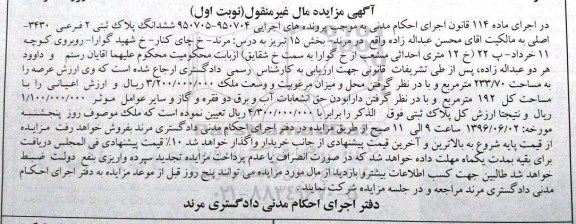 آگهی مزایده مال غیرمنقول(نوبت اول)
در اجرای ماده ۱۱۴ قانون اجرای احکام مدنی به موجب پرونده های اجرایی ۹۵۰۷۰۴-۹۵۰۷۰۵ ششدانگ پلاک ثبتی ۲ فرعی ۳۴۳۰-
اصلی به مالکیت آقای محسن عبداله زاده واقع در بخش ۱۵ تبریز به درس: مرند-خ چای کنار-خ شهید گوارا-روبروی کوچه
۱۱ خرداد-پ ۲۲ (خ ۱۲ متری احداثی منشعب از خ گوارا به سمت خ شقایق) ازبابت محکومیت محکوم علیهما آقایان رستم و داوود
هر دو عبداله زاده، پس از طی تشریفات قانونی جهت ارزیابی به کارشناس رسمی دادگستری ارجاع شده است که وی ارزش عرصه را
به مساحت ۲۳۳/۷۰ مترمربع و با در نظر گرفتن محل و میزان مرغوبیت و وسعت ملک ۳/۲۰۰/۰۰۰/۰۰۰ ریال و ارزش اعیانی را با
مساحت کل ۱۹۲ مترمربع و با در نظر گرفتن دارابودن حق انشعابات آب و برق دو فقره و گاز و سایر عوامل موثر ۱/۱۰۰/۰۰۰/۰۰۰
ریال و نتیجتا ارزش کل پلاک ثبتی فوق الذکر را برابر با ۴/۳۰۰/۰۰۰/۰۰۰ ریال تعیین نموده است که ملک موصوف روز پنجشنبه
مورخه: ۱۳۹۶/۰۶/۰۲ ساعت ۹ الی ۱۱ صبح از طریق مزایده در دفتر اجرای احکام مدنی دادگستری مرند بفروش خواهد رفت مزایده
از قیمت پایه شروع به بالاترین و آخرین قیمت پیشنهادی از جانب خریدار واگذار خواهد شد ۱۰٪ قیمت پیشنهادی فی المجلس دریافت
برای بقیه بمدت یکماه مهلت داده خواهد شد که در صورت انصراف یا عدم پرداخت مزایده تجدید سپرده واریزی بنفع دولت ضبط
خواهد شد طالبین جهت کسب اطلاعات بیشتر و بازدید از مال مورد مزایده می توانند پنج روز قبل از موعد مزایده به دفتر اجرای احکام
مدنی دادگستری مرند مراجعه و در جلسه مزایده شرکت نمایند.
دفتر اجرای احکام مدنی دادگستری مرند